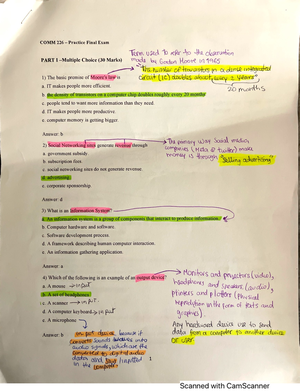 COMM 226 – Practice Final Exam
Term used to refer to the observation
made by Gordon Moore in 1965
PART 1 –Multiple Choice (30 Marks)
"the number of transistors in a dense integrated
circuit (IC) doubles about every 2 years"
20 months
1) The basic premise of Moore's law is
a. IT makes people more efficient.
b. the density of transistors on a computer chip doubles roughly every 20 months
c. people tend to want more information than they need.
d. IT makes people more productive.
e. computer memory is getting bigger.
Answer: b
2) Social Networking sites generate revenue through
a. government subsidy
b. subscription fees
c. social networking sites do not generate revenue.
d. advertising.
e. corporate sponsorship.
The primary way social media
companies (Meta & Twitter) make
money is through "selling advertising"
Answer: d
3) What is an Information System?
a. An information system is a group of components that interact to produce information.
b. Computer hardware and software.
c. Software development process.
d. A framework describing human computer interaction.
e. An information gathering application.
Answer: a
4) Which of the following is an example of an output device?
a. A mouse → input
b. A set of headphones
c. A scanner → input
d. A computer keyboard → input
e. A microphone
Monitors and projectors (video),
headphones and speakers (audio),
printers and plotters (physical
reproduction in the form of texts and
graphics)
Any hardware device use to send
data from a computer to another device
or user
Answer: b
input device because it
converts sound waves into
audio signals, which are then
converted to digital audio
data and inputted
in the computer
1
Scanned with CamScanner